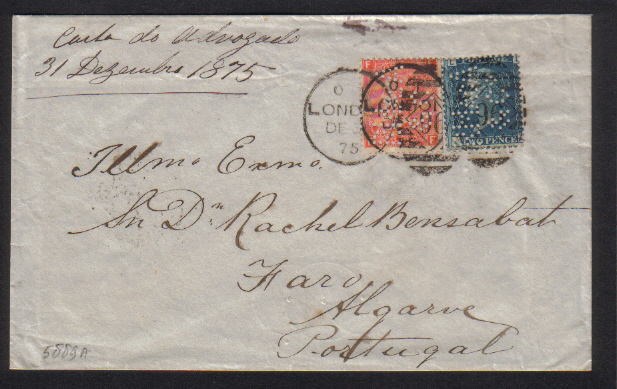 Carta do Advogado
31 Dezembro 1875
LONDON
DE 31
75
TWO PENCE
Illmo Exmo.
Sn Dn Rachel Bensabat
Faro
Algarve
Portugal
5889A